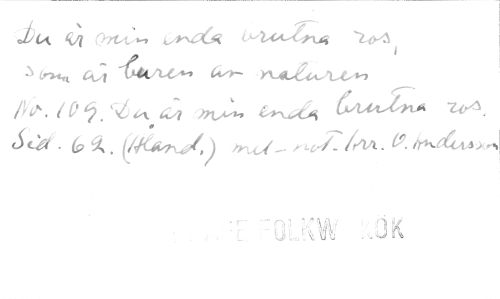 Du är min enda brutna ros,
som är buren av naturen
No. 109. Du är min enda brutna ros.
Sid. 62. (Åland.) mel-not. arr. O. Andersson
FOLKW KÖK